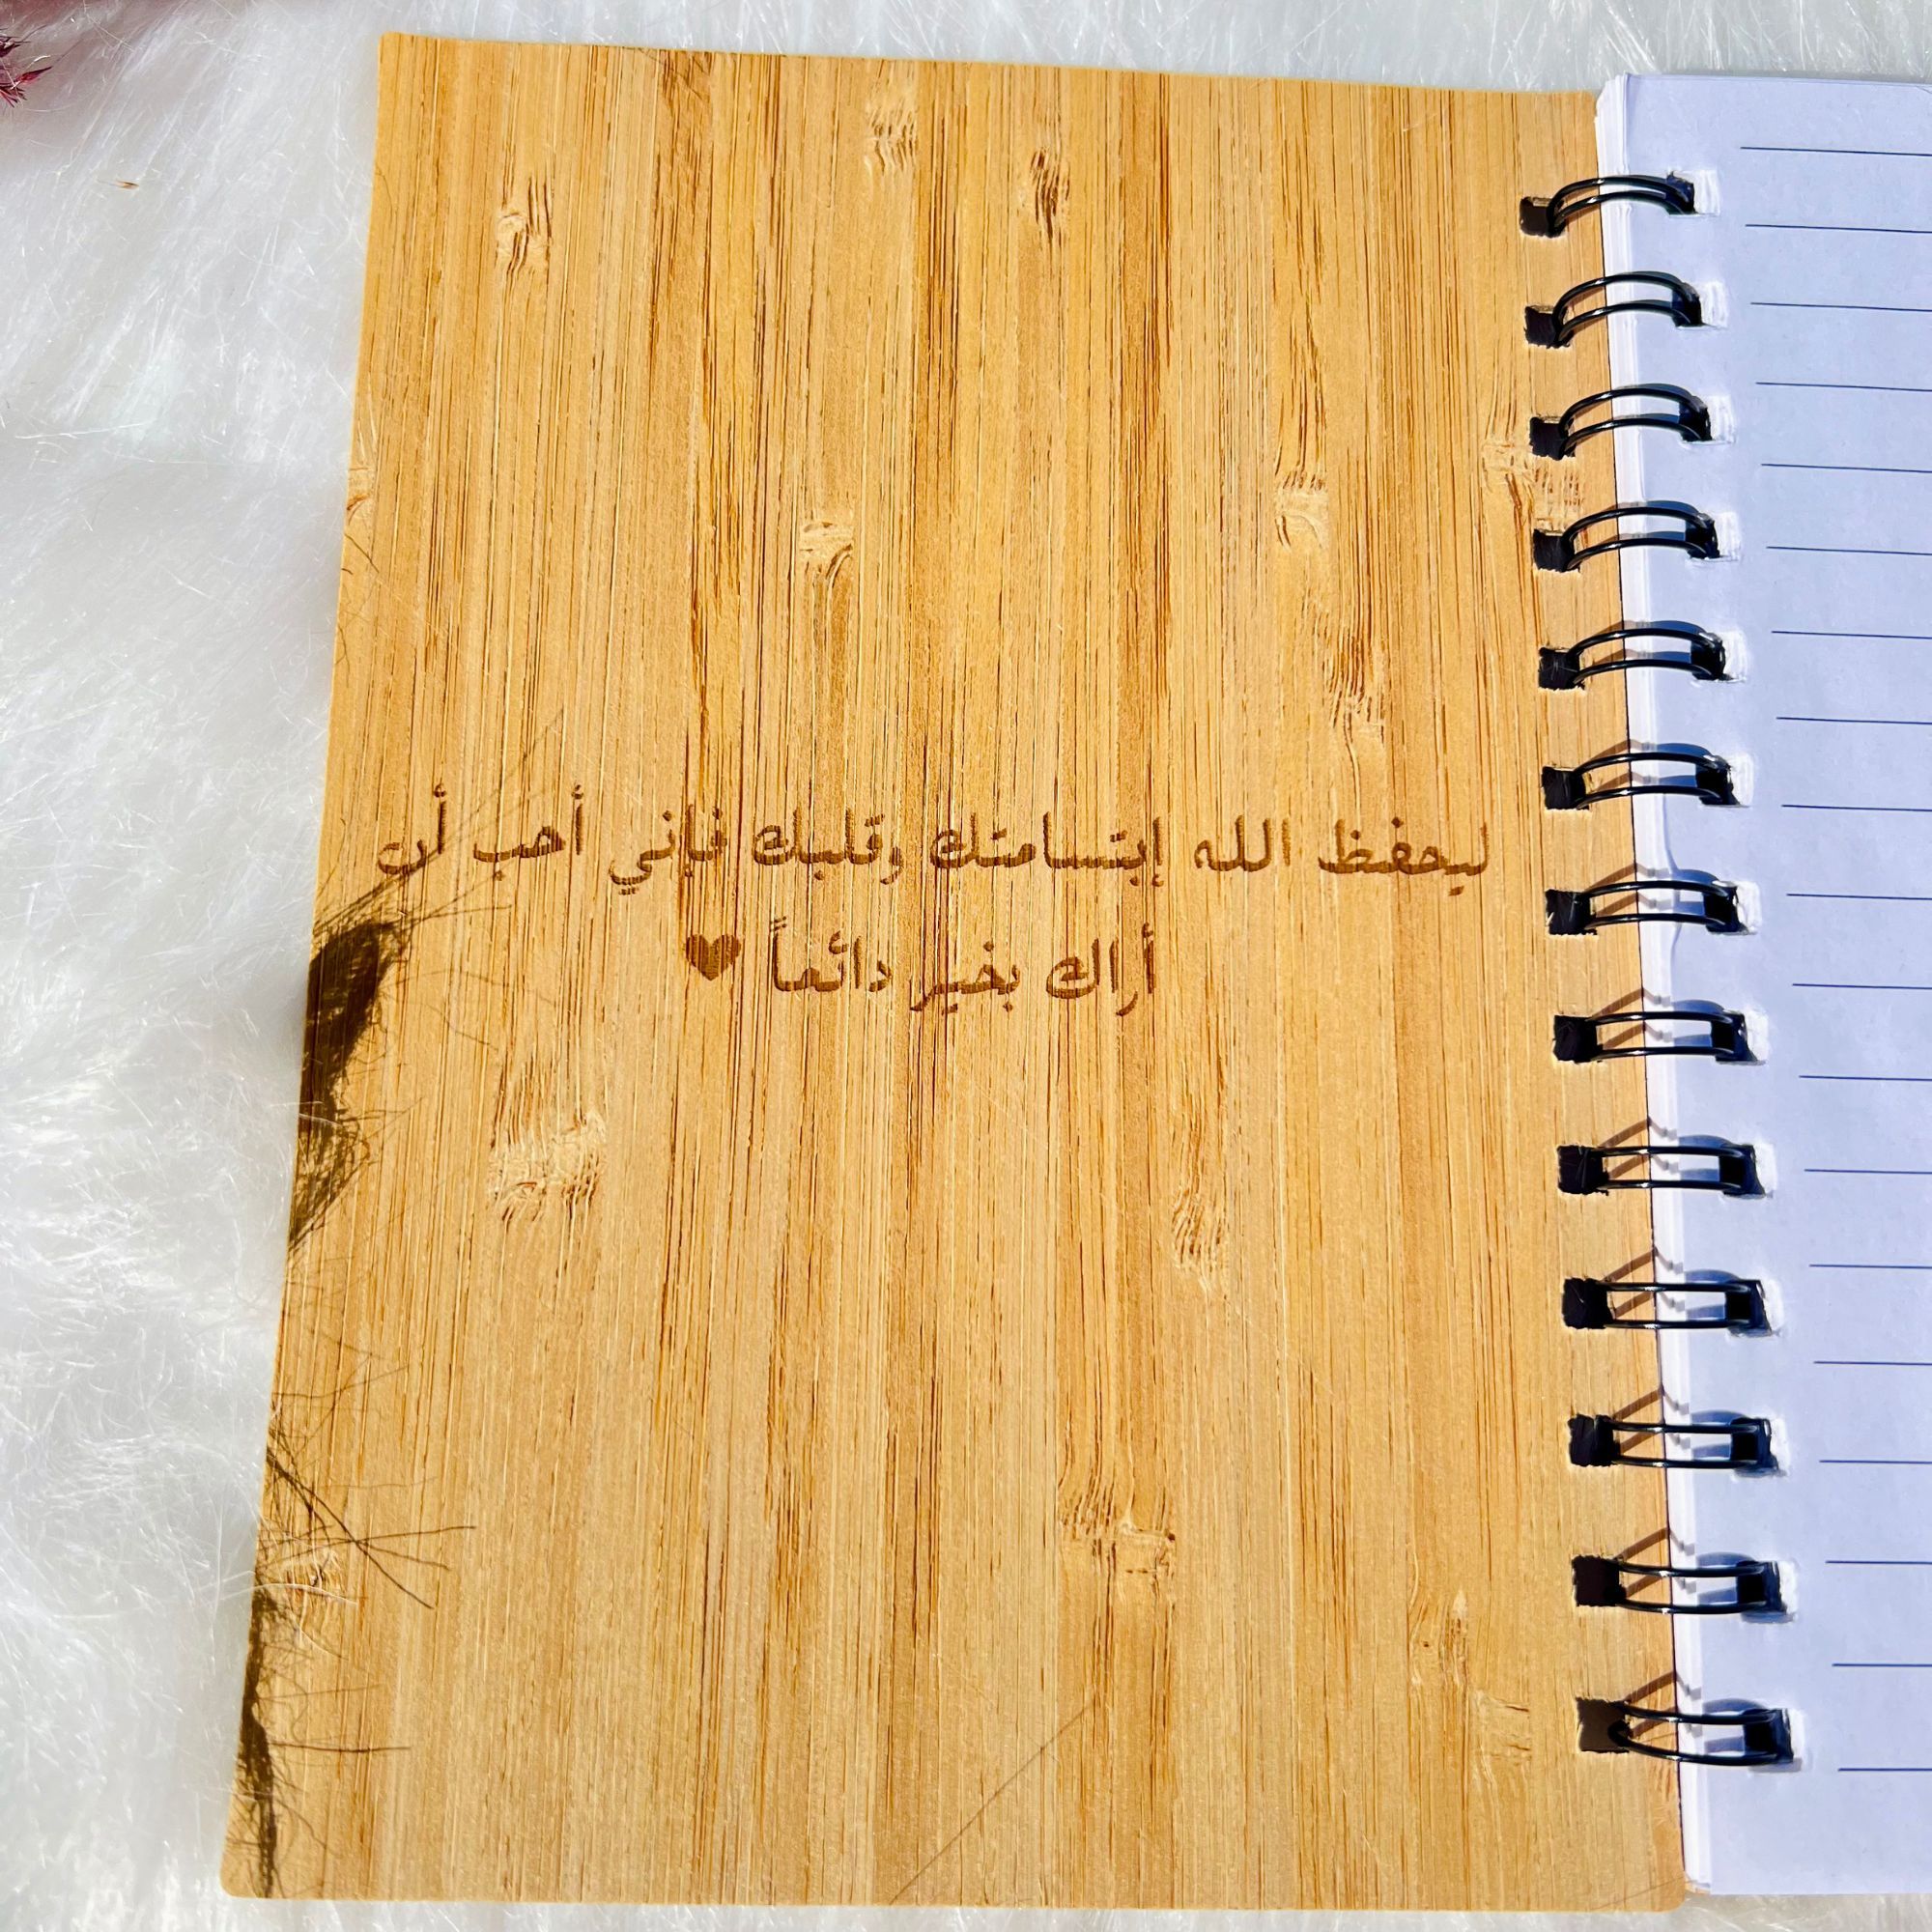 ليحفظ الله إبتسامتك وقلبك فإني أحب أن
أراك بخير دائماً ♥